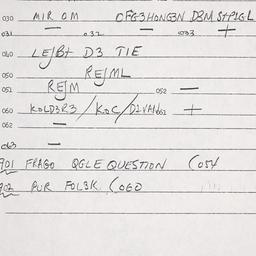 030 MIR OM CFG3HONG3N D3M St PIGL
031 — 032 — 033 +
040 LEJBt D3 TIE
050 REJML
051 REJM 052 —
060 KOLD3R3/KOC/D2VAN 061 +
062 —
063 —
901 FRAGO QGLE QUESTION (054
902 PUR FOL3K (060